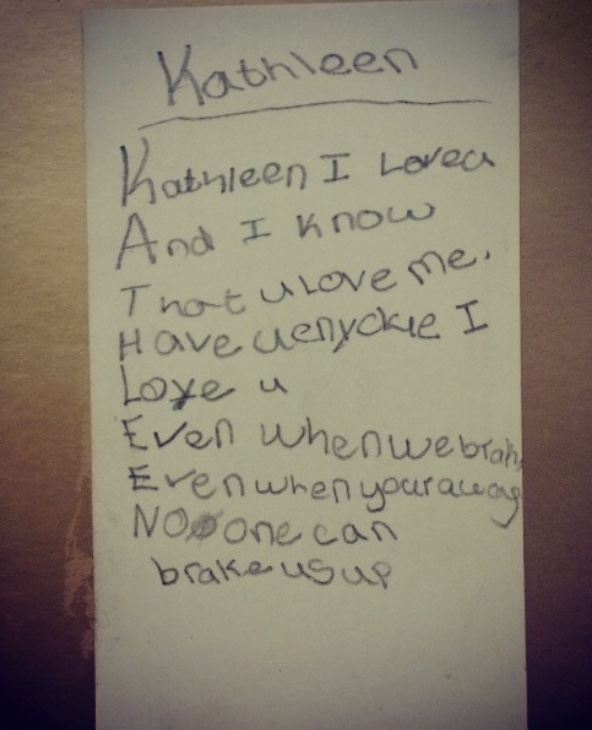 Kathleen
Kathleen I Love u
And I know
That u Love me.
Have I
Love u
Even when we
Even when your away
NO one can
brake us up